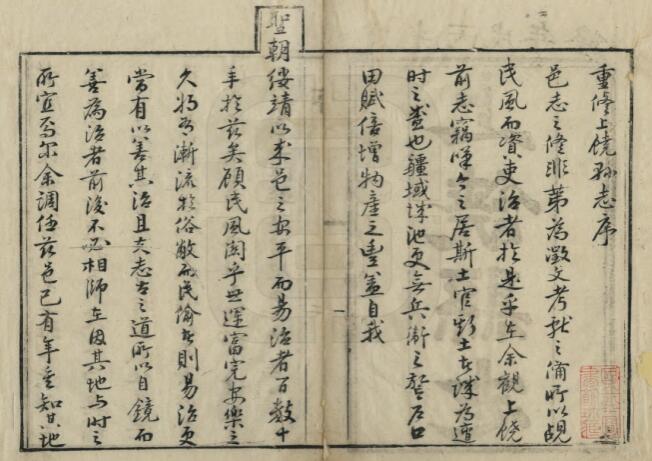 重修上饒縣志序
邑志之修非第為徵文考獻之備所以覘
民風而資吏治者於是乎在余觀上饒
前志竊嘆今之居斯土官斯土者誠為遭
時之盛也疆域城池更無兵漸之警戶口
田賦倍增物產之豐蓋自我
聖朝綏靖以來邑之安平而易治者百數十
手於茲矣顧民風關乎世運富完安樂之
久將有漸流於俗敝而民偷者則易治更
當有以善其治且夫志古之道所以自鏡而
善為治者前後不必相師在因其地與時之
所宜焉尔余調任茲邑已有年矣知其地